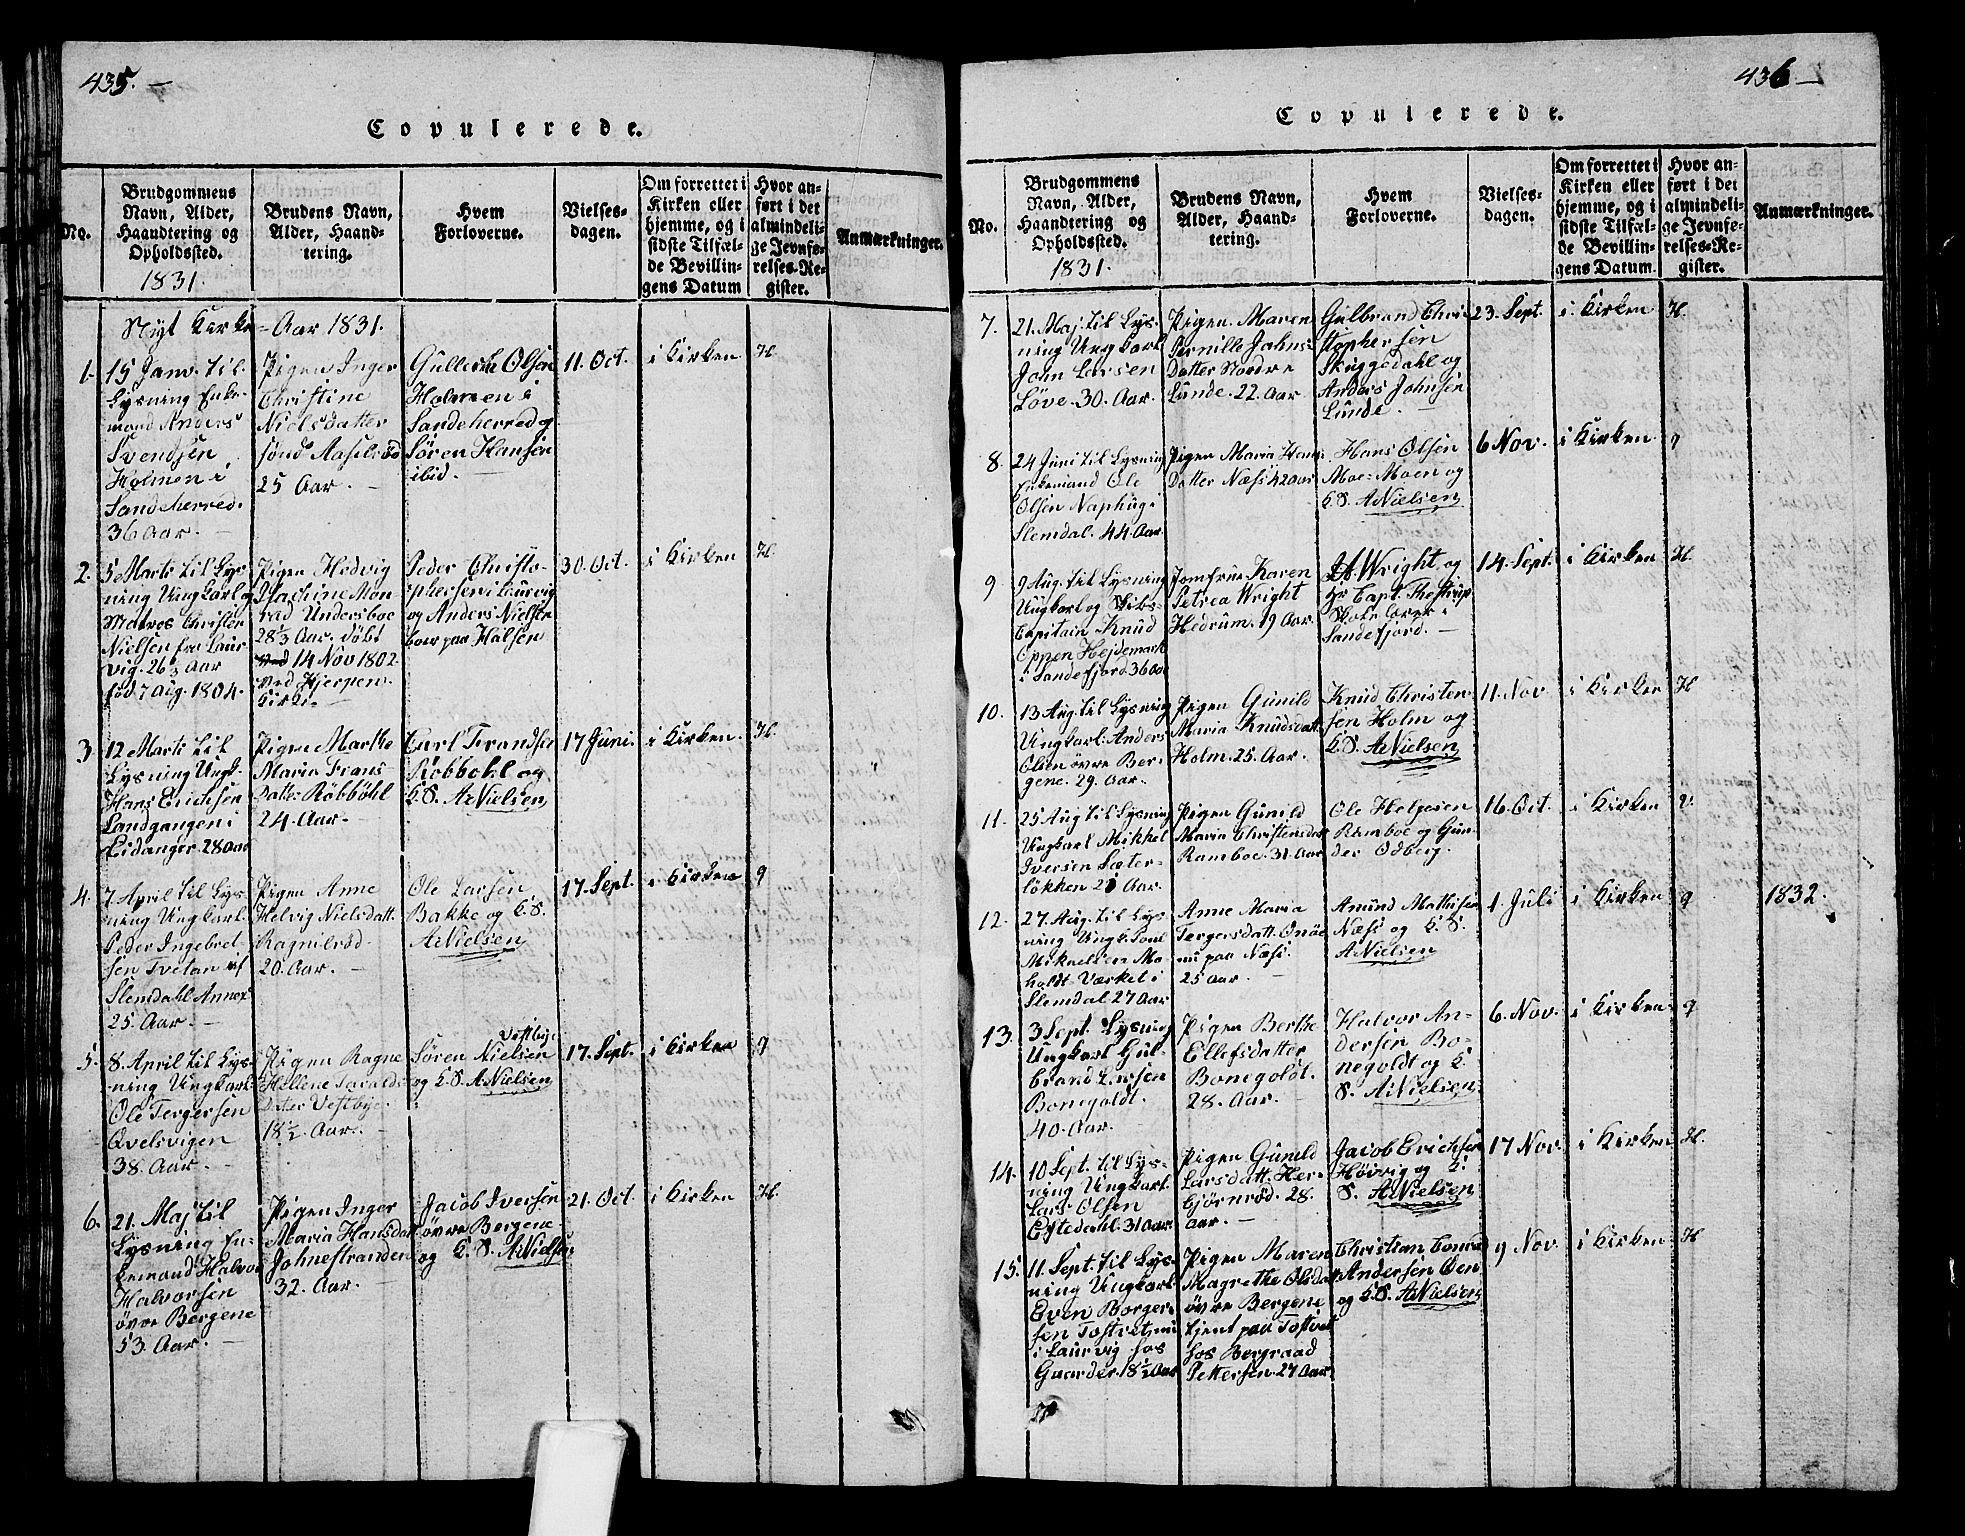 435.
Copulerede.
No.
Brudgommens
Navn, Alder,
Haandtering og
Opholdssted.
1831.
Brudens Navn,
Alder, Haand-
tering.
Hvem
Forloverne.
Vielses-
dagen.
Om forrettet i
Kirken eller
hjemme, og i
sidste Tilfæl-
de Bevillin-
gens Datum
Hvor an-
ført i det
almindeli-
ge Jevnfø-
relses-Re-
gister.
Anmærkninger.
Nyt Kirke-Aar 1831.
1.
15 Janv. til
Lysning Enke-
mand Anders
Svendsen
Holmen i
Sandeherred.
36 Aar.
Pigen Inger
Christine
Nielsdatter
sönd Aaselröd
25 Aar.
Gullerik Olsen
Holmen i
Sandeherred og
Søren Hansen
ibid.
11. Oct.
i Kirken
H.
2.
5 Marts til Lys-
ning Ungkarl og
Matros Christen
Nielsen fra Laur-
vig. 26⅔ Aar
fød 7 Aug. 1804.
Pigen Hedvig
Mon-
rad Undersboe
28⅓ Aar. døbt
14 Nov 1802.
ved Hjerpen-
Kirke.
Peder Christo-
phersen i Laurvig
og Anders Nielsen
boer paa Halsen
30. Oct.
i Kirken
H.
3.
12 Marts til
Lysning Ungk.
Hans Erichsen
Landgangen i
Eidanger. 28 Aar
Pigen Marthe
Maria Frans
Datter Röbböhl
24. Aar.
Carl Frandsen
Robbohl og
K.S. A. Nielsen
17 Juni.
i Kirken.
H.
4.
7 April til Lys-
ning Ungkarl.
Peder Ingebret-
sen Tvetan af
Slemdahl Annex
25. Aar.
Pigen Anne
Helvig Nielsdatt.
Ragnilröd.
20. Aar.
Ole Larsen
Bakke og K.S.
A. Nielsen
17. Sept.
i Kirken
9
5.
8. April til Lys-
ning Ungkarl.
Ole Tergersen
Qvelsvigen
38. Aar.
Pigen Ragne
Hellene
Dater Vestbÿe.
18½. Aar.
Vestbÿe
Søren Nielsen
og K.S. A. Nielsen
17. Sept.
i Kirken
9
6.
21. Maj til
Lysning En-
kemand Halvor
Halvorsen
övre Bergene
53. Aar.
Pigen Inger
Maria Hansdatt
Johnestranden
32. Aar.
Jacob Iversen
övre Bergene
og K.S. A. Nielsen
21. Oct.
i Kirken
H.
436
Copulerede.
No.
Brudgommens
Navn, Alder,
Haandtering og
Opholdssted.
1831.
Brudens Navn,
Alder, Haand-
tering.
Hvem
Forloverne.
Vielses-
dagen.
Om forrettet i
Kirken eller
hjemme, og i
sidste Tilfæl-
de Bevillin-
gens Datum.
Hvor an-
ført i det
almindeli-
ge Jevnfø-
relses-Re-
gister.
Anmærkninger.
7.
21. Maj til Lys-
ning Ungkarl
John Larsen
Löve. 30. Aar.
Pigen Maren
Pernille Johns-
Datter Nordre
Lunde. 22. Aar
Gulbrand Chri-
stophersen
Skuggedahl og
Anders Johnsen
Lunde.
23. Sept.
i Kirken
H.
8.
24 Juni til Lysning
Enkemand Ole
Olsen Naphug i
Slemdal. 44. Aar.
Pigen Maria Hans
Datter Næss 42 aar
Hans Olsen
Moe-Moen og
K.S. A Nielsen
6 Nov.
i Kirken
9
9
9 Aug. til Lysning
Ungkarl og Skibs-
Capitain Knud
Oppen Hejdemark
i Sandefjord. 36 Aar
Jomfrue Karen
Petrea Wright
Hedrum. 19 Aar.
Wright og
Hr Capt.
Sandefjord.
14. Sept.
i Kirken
H.
10.
13 Aug. til Lysning
Ungkarl: Anders
Olsen övre Ber-
gene. 29. Aar.
Pigen Gunild
Maria Knudsdatt
Holm. 25. Aar.
Knud Christen-
sen Holm og
K.S. A. Nielsen
11. Nov
i Kirken
H
11.
25 Aug til Lysning
Ungkarl Mikkel
Iversen Sæter-
lökken Aar.
Pigen Gunild
Maria Christensdatt
Ramboe. 31. Aar
Ole Helgesen
Ramboe og Gun-
der Odberg.
16. Oct.
i Kirken
9.
12.
27. Aug. til Lys-
ning Ungk. Poul
Mikaelsen Ma-
holdt Værket i
Slemdal 27 Aar
Anne Maria
Tergersdatt.
nu paa Næss.
25 Aar.
Amund Mathisen
Næss og K.S.
A Nielsen
1. Juli
i Kirken
9
1832.
13.
3 Sept. Lysning
Ungkarl Gul-
brand Larsen
Bonegoldt.
40. Aar.
Pigen Berthe
Ellefsdatter
Bonegoldt.
28. Aar.
Halvor An-
dersen Bo-
negoldt og K.
S. A. Nielsen
6. Nov.
i Kirken
9
14.
10 Sept. til Lys-
ning Ungkarl.
Lars Olsen
Eftedahl. 31 Aar
Pigen Gunild
Larsdatt. Her-
gjörnröd. 28.
Aar.
Jacob Erichsen
Höivig og K.
S. A. Nielsen
17 Nov.
i Kirken
H.
15.
11. Sept. til Lys-
ning Ungkarl.
Even Borger-
sen Tostvet nu
i Laurvig hos
Gaarder. 18½ Aar
Pigen Maren
Magrethe Olsdatt
övre Bergene
tjent paa Tostvet
hos Bergraad
Pettersen. 27 Aar.
Christian Conrad
Andersen Oen
og K.S. A. Nielsen
9 Nov.
i Kirken
H